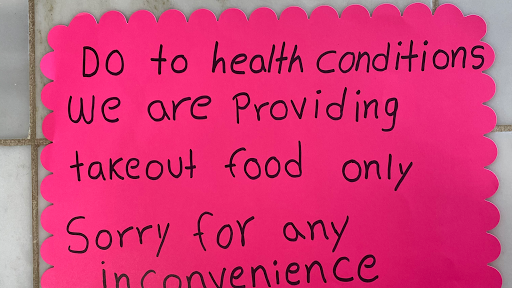 Do to health conditions
we are Providing
takeout food only
Sorry for any
inconvenience